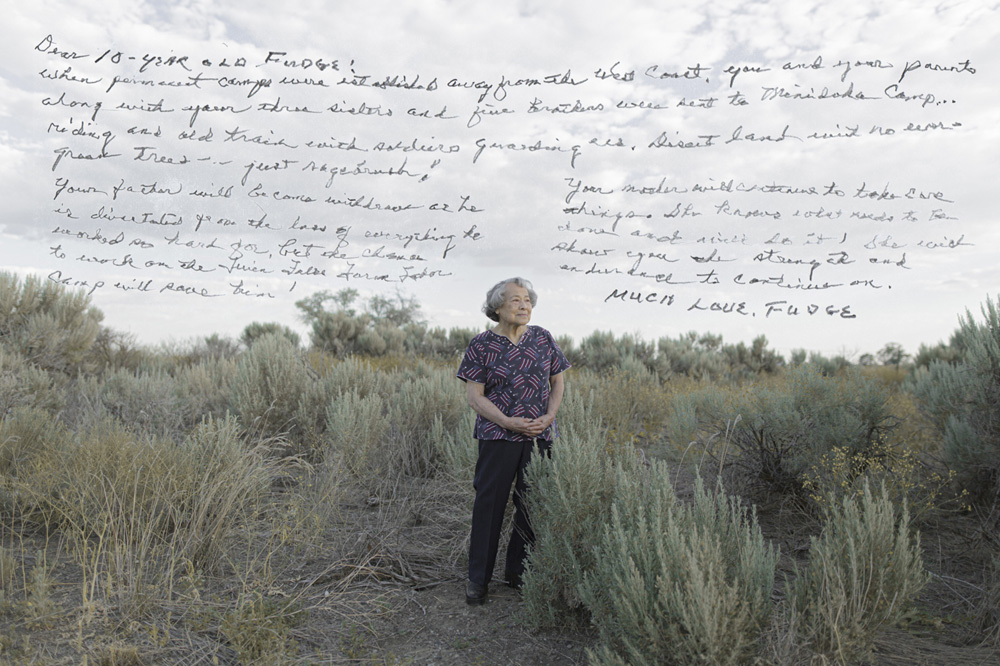 Dear 10-YEAR OLD FUDGE!
When permanent camps were established away from the West Coast, you and your parents
along with your three sisters and five brothers were sent to Minidoka Camp...
riding and old train with soldiers guarding us. Desert land with no ever-
green trees... just sagebrush!
Your father will become withdrawn as he
is devastated from the loss of everything he
worked so hard for, but the chance
to work on the Twin Falls Farm Labor
Camp will save him!
Your mother will continue to take care
things. She knows what needs to be
done and will do it! She will
show you the strength and
endurance to continue on.
MUCH LOVE, FUDGE